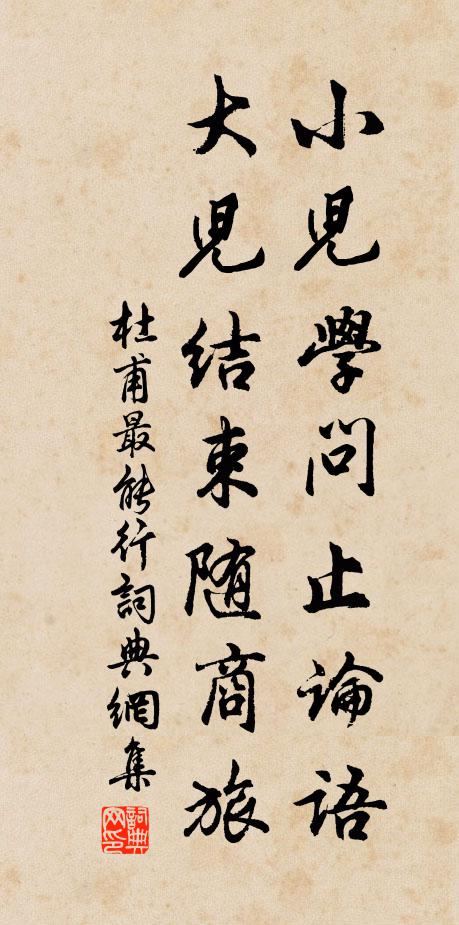 小兒學問止論語
大兒結束随商旅
杜甫最能行詞典網集
詞典網印